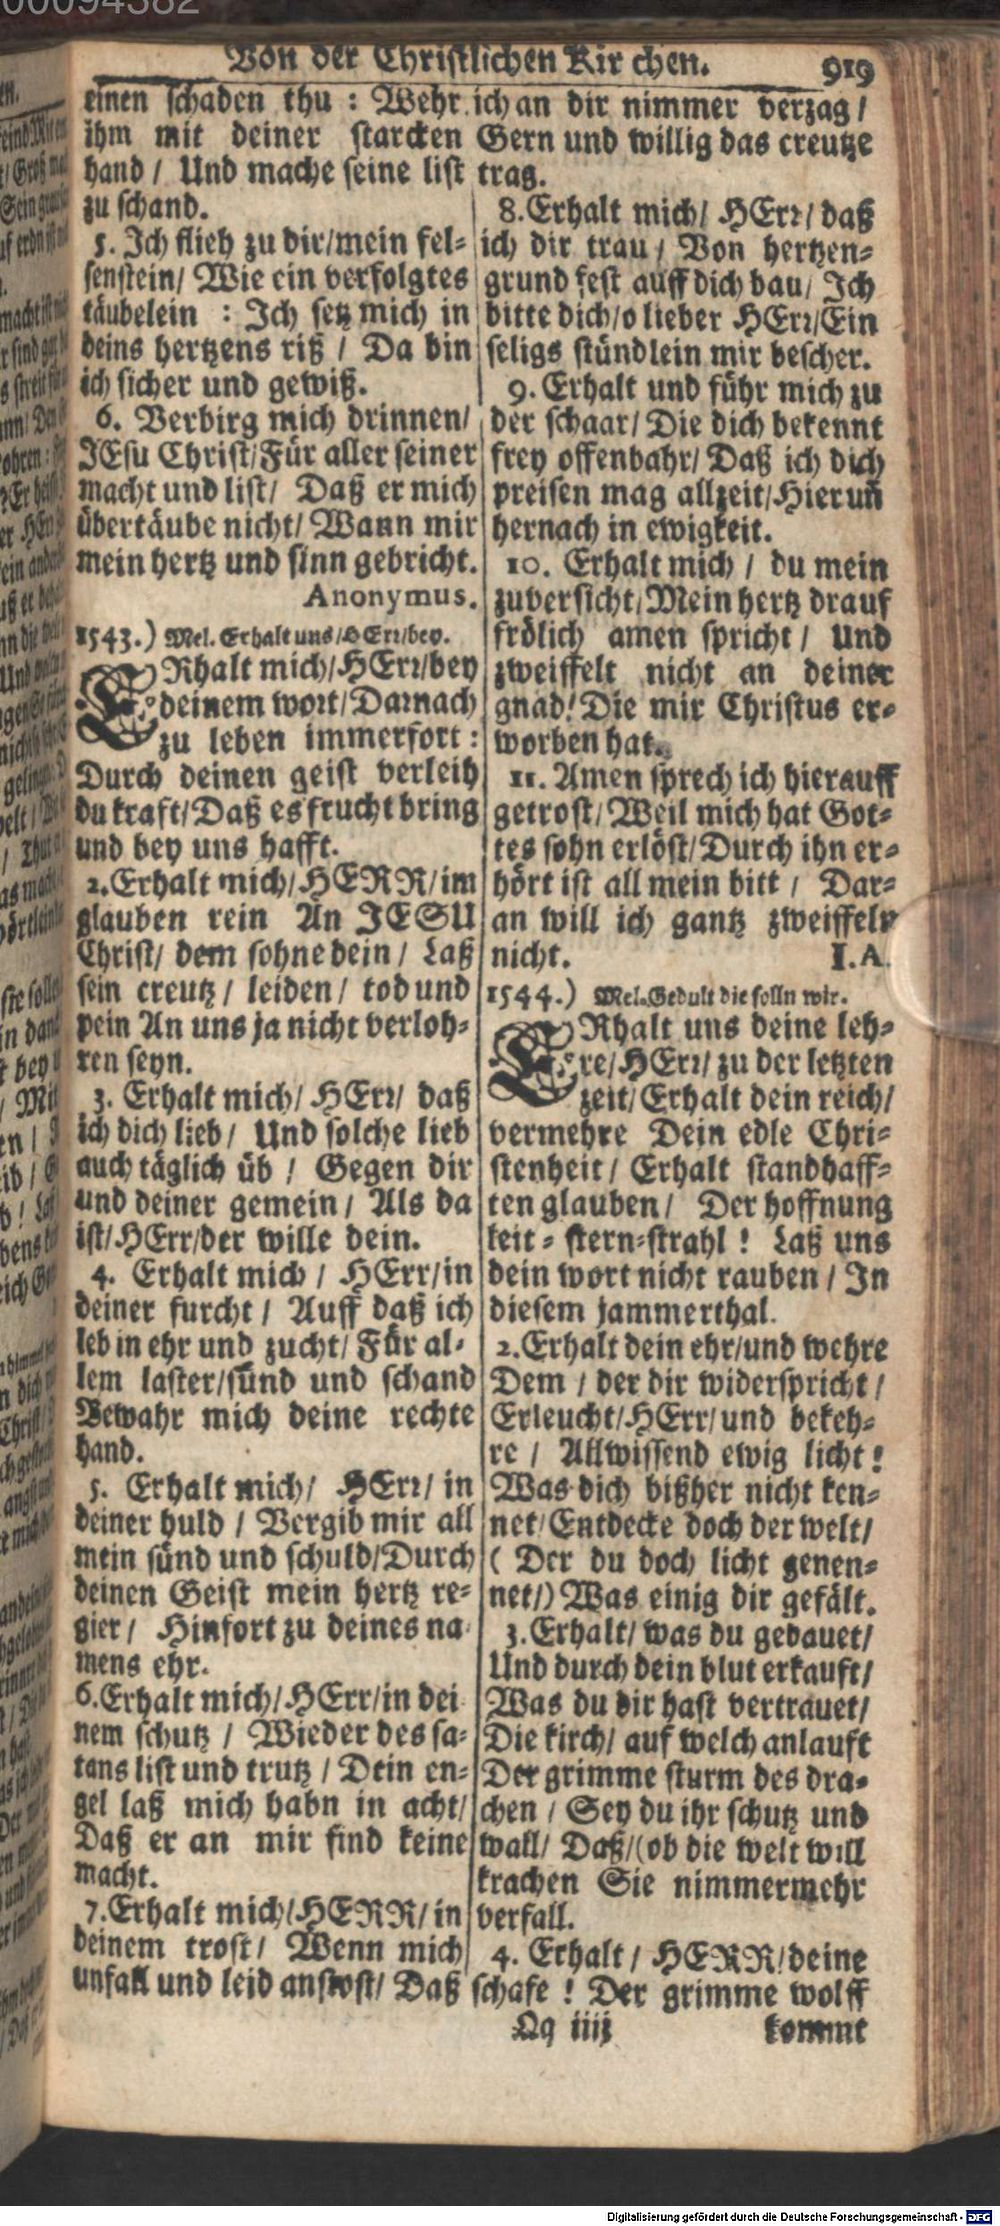 Von der Christlichen Kirchen. 919
einen schaden thu : Wehr
ihm mit deiner starcken
hand / Und mache seine list
zu schand.
5. Ich flieh zu dir/mein fel-
senstein/ Wie ein verfolgtes
täubelein : Ich setz mich in
deins hertzens riß / Da bin
ich sicher und gewiß.
6. Verbirg mich drinnen/
JEsu Christ/Für aller seiner
macht und list/ Daß er mich
übertäube nicht/ Wann mir
mein hertz und sinn gebricht.
Anonymus.
1543.) Mel. Erhalt uns/HErr/bey.
ERhalt mich/HErr/bey
deinem wort/Darnach
zu leben immerfort :
Durch deinen geist verleih
du kraft/Daß es frucht bring
und bey uns hafft.
2. Erhalt mich/HERR/im
glauben rein An JESU
Christ/ dem sohne dein / Laß
sein creutz / leiden / tod und
pein An uns ja nicht verloh-
ren seyn.
3. Erhalt mich/ HErr/ daß
ich dich lieb / Und solche lieb
auch täglich üb / Gegen dir
und deiner gemein / Als da
ist/HErr/der wille dein.
4. Erhalt mich / HErr/in
deiner furcht / Auff daß ich
leb in ehr und zucht/ Für al-
lem laster/sünd und schand
Bewahr mich deine rechte
hand.
5. Erhalt mich/ HErr/ in
deiner huld / Vergib mir all
mein sünd und schuld/Durch
deinen Geist mein hertz re-
gier / Hinfort zu deines na-
mens ehr.
6. Erhalt mich/HErr/in dei
nem schutz / Wieder des sa-
tans list und trutz / Dein en-
gel laß mich habn in acht/
Daß er an mir find keine
macht.
7. Erhalt mich/HERR/in
deinem trost / Wenn mich
unfall und leid anstost/ Daß
ich an dir nimmer verzag /
Gern und willig das creutze
trag.
8. Erhalt mich/ HErr/ daß
ich dir trau / Von hertzen-
grund fest auff dich bau/ Ich
bitte dich/o lieber HErr/Ein
seligs stündlein mir bescher.
9. Erhalt und führ mich zu
der schaar/ Die dich bekennt
frey offenbahr/ Daß ich dich
preisen mag allzeit/Hier uñ
hernach in ewigkeit.
10. Erhalt mich / du mein
zuversicht/Mein hertz drauf
frölich amen spricht / Und
zweiffelt nicht an deiner
gnad/ Die mir Christus er-
worben hat.
11. Amen sprech ich hierauff
getrost/ Weil mich hat Got-
tes sohn erlöst/Durch ihn er-
hört ist all mein bitt / Dar-
an will ich gantz zweiffeln
nicht. I.A.
1544.) Mel. Gedult die solln wir.
ERhalt uns deine leh-
re/HErr/ zu der letzten
zeit/Erhalt dein reich/
vermehre Dein edle Chri-
stenheit / Erhalt standhaff-
ten glauben / Der hoffnung
leit-stern-strahl ! Laß uns
dein wort nicht rauben / In
diesem jammerthal.
2. Erhalt dein ehr/und wehre
Dem / der dir widerspricht /
Erleucht/HErr/und bekeh-
re / Allwissend ewig licht !
Was dich bißher nicht ken-
net/Entdecke doch der welt/
( Der du doch licht genen-
net/) Was einig dir gefält.
3. Erhalt/ was du gebauet/
Und durch dein blut erkauft/
Was du dir hast vertrauet/
Die kirch/ auf welch anlauft
Der grimme sturm des dra-
chen / Sey du ihr schutz und
wall/ Daß/(ob die welt will
krachen Sie nimmermehr
verfall.
4. Erhalt / HERR/deine
schafe ! Der grimme wolff
Qq iiij kommt
Digitalisierung gefördert durch die Deutsche Forschungsgemeinschaft - DFG